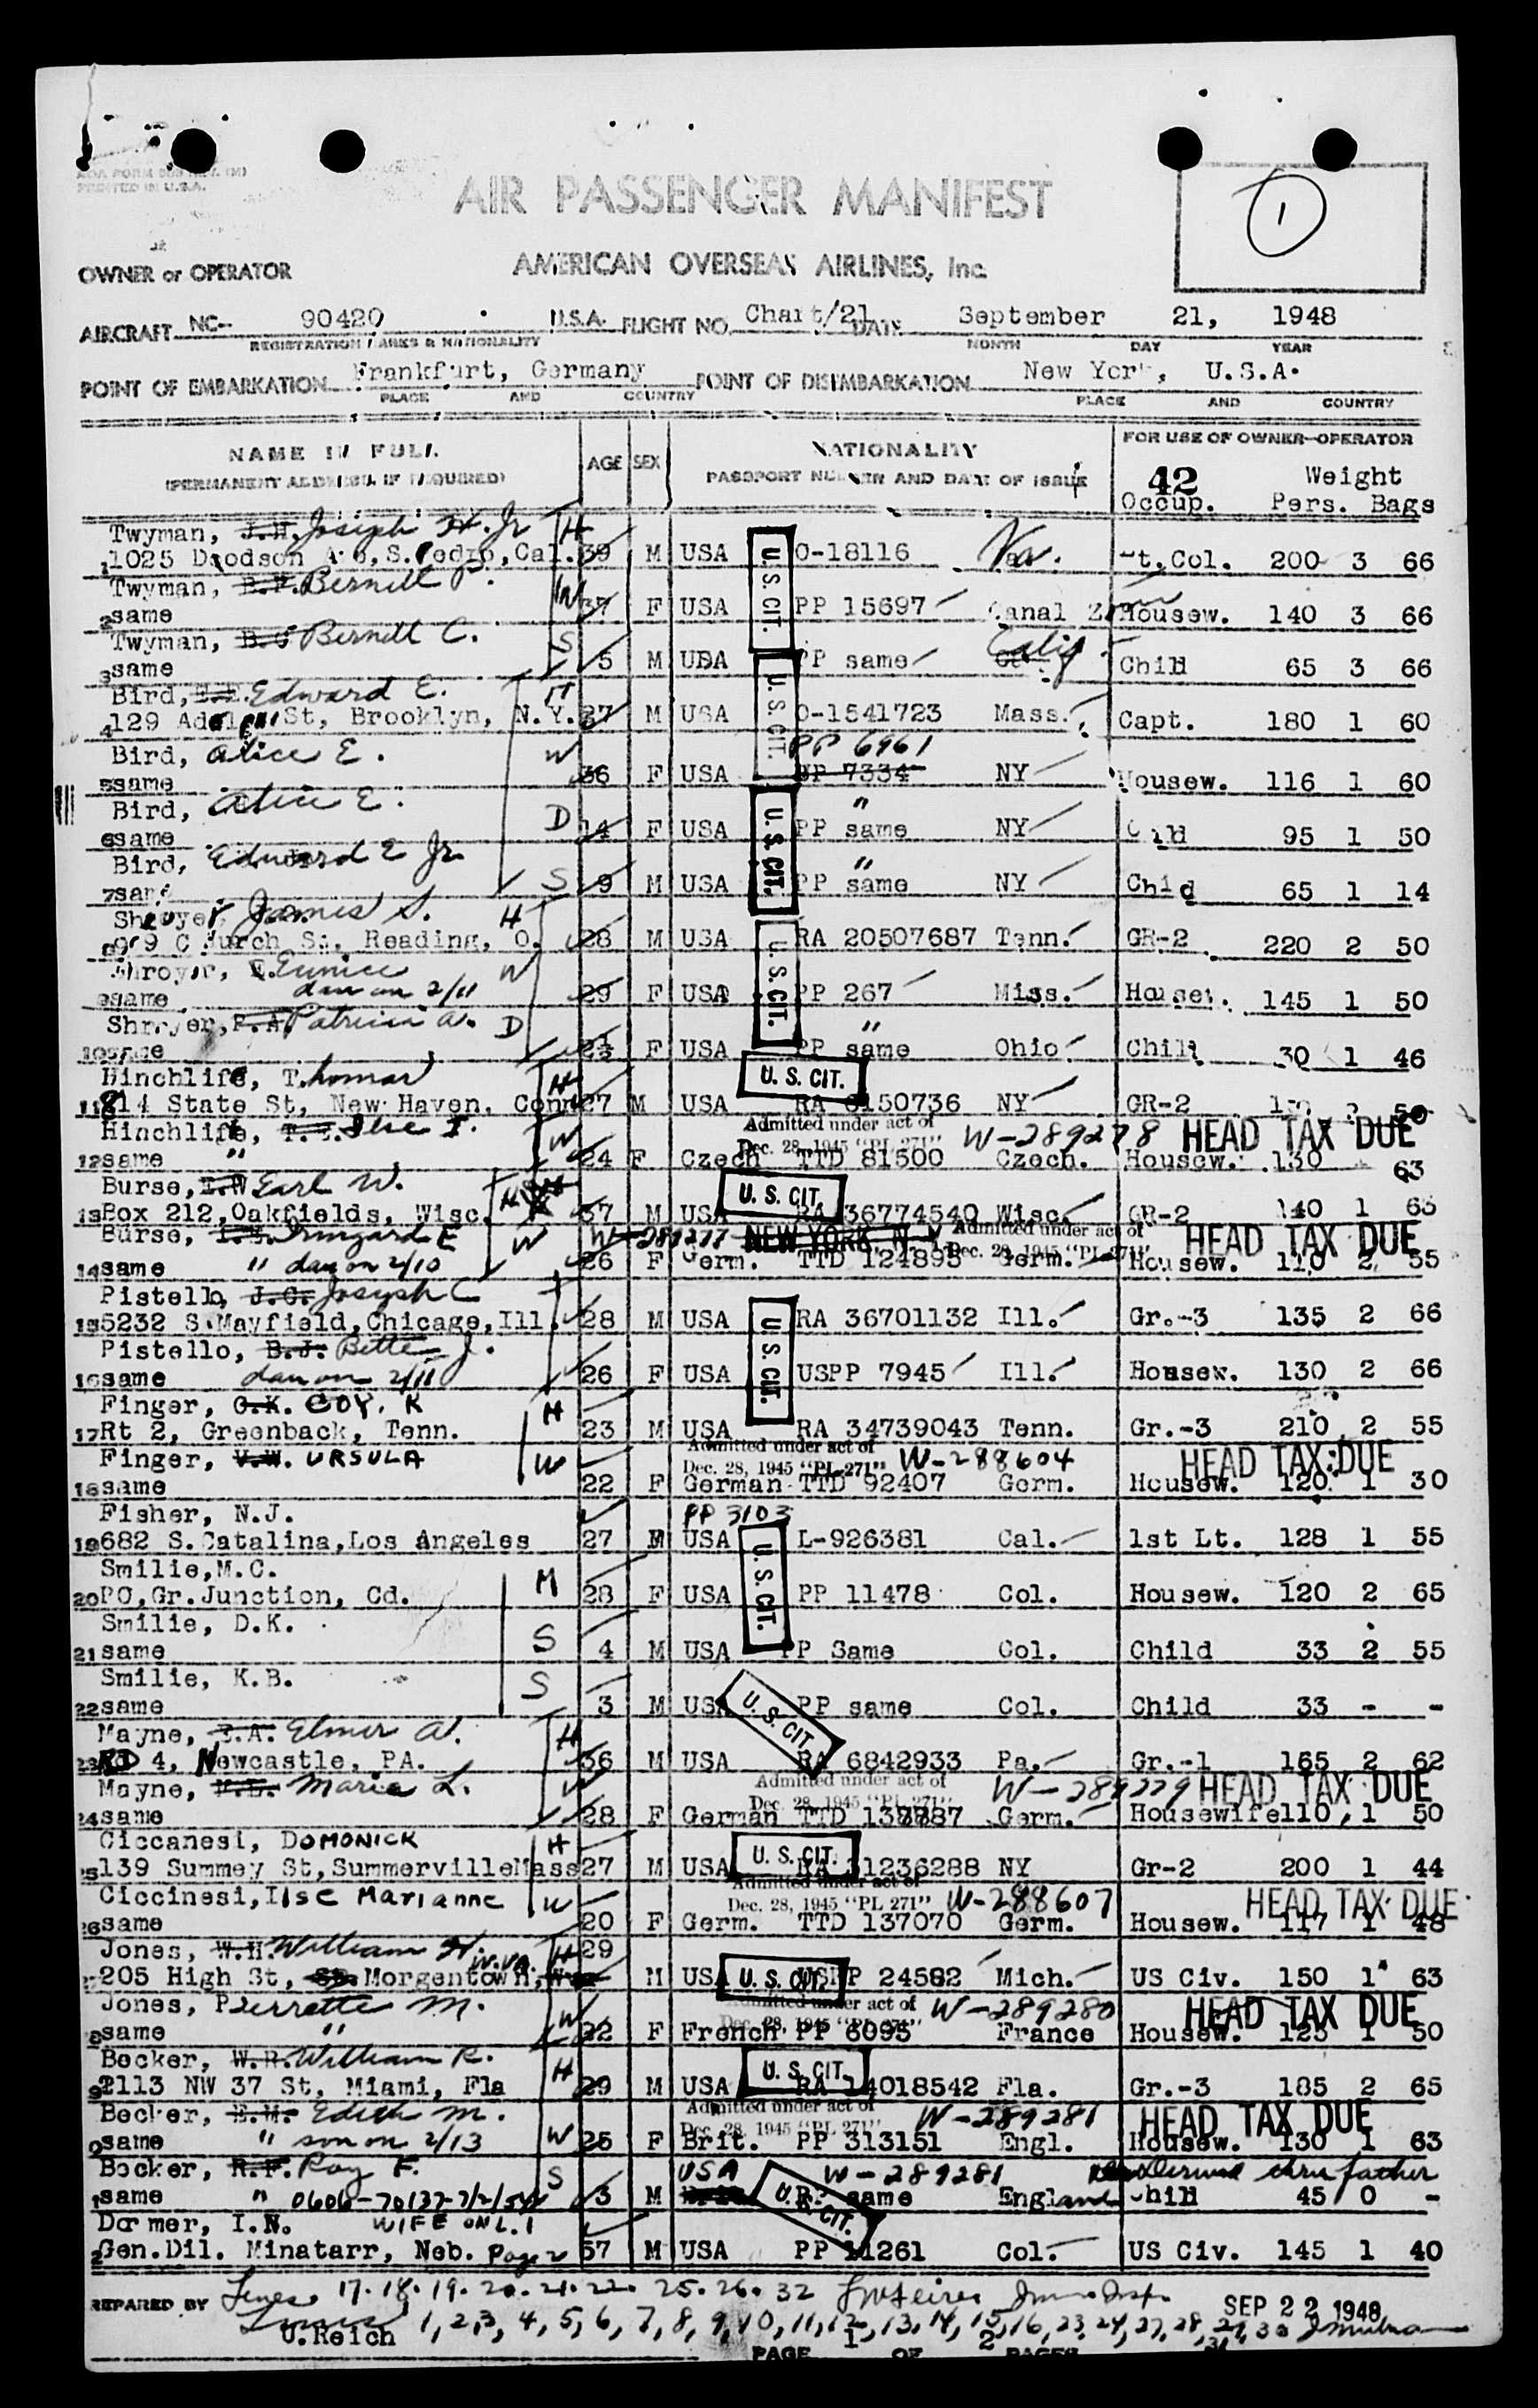 AIR PASSENGER MANIFEST
1
OWNER or OPERATOR AMERICAN OVERSEAS AIRLINES, Inc.
AIRCRAFT NC- 90420 U.S.A. FLIGHT NO. Chart/21 DATE September 21, 1948
REGISTRATION MARKS & NATIONALITY MONTH DAY YEAR
POINT OF EMBARKATION Frankfurt, Germany POINT OF DISEMBARKATION New York, U.S.A.
PLACE AND COUNTRY PLACE AND COUNTRY
NAME IN FULL AGE SEX NATIONALITY FOR USE OF OWNER-OPERATOR
(PERMANENT ADDRESS, IF REQUIRED) PASSPORT NUMBER AND DATE OF ISSUE 42 Weight
Occup. Pers. Bags
Twyman, J.H. Joseph H. Jr H
1 1025 Dodson Ave, S.Pedro, Cal. 39 M USA U.S. CIT. O-18116 Va. Lt.Col. 200 3 66
Twyman, Bernell P. W
2 same 37 F USA PP 15697 Canal Zone Housew. 140 3 66
Twyman, Bernell C. S
3 same 5 M USA PP same Calif. Child 65 3 66
Bird, E.E. Edward E. H
4 129 Adelphi St, Brooklyn, N.Y. 37 M USA U.S. CIT. O-1541723 Mass. Capt. 180 1 60
Bird, Alice E. W PP 6961
5 same 36 F USA PP 7334 NY Housew. 116 1 60
Bird, Alice E. D "
6 same 14 F USA U.S. CIT. PP same NY Child 95 1 50
Bird, Edward E Jr "
7 same S 9 M USA PP same NY Child 65 1 14
Shroyer James S. H
8 Church St, Reading, O. 28 M USA U.S. CIT. RA 20507687 Tenn. GR-2 220 2 50
Shroyer, E. Eunice W
dau on 2/11
9 same 29 F USA PP 267 Miss. Housew. 145 1 50
Shroyer, P.A. Patricia A. D "
10 same F USA PP same Ohio Child 30 1 46
Hinchlife, Thomas H U.S. CIT.
11 814 State St, New Haven, Conn 27 M USA RA 6150736 NY GR-2
Hinchlife, Ilse I. W Admitted under act of Dec. 28, 1945 "PL 271" W-289278 HEAD TAX DUE
12 same " 24 F Czech TTD 81500 Czech. Housew. 130 63
Burse, E.W. Earl W. H U.S. CIT.
13 Box 212, Oakfields, Wisc. 37 M USA RA 36774540 Wisc. GR-2 140 1 63
Burse, Irmgard E W W-289277 NEW YORK, N.Y. Admitted under act of Dec. 28, 1945 "PL 271" HEAD TAX DUE
14 same " dau on 2/10 26 F Germ. TTD 124895 Germ. Housew. 110 2 55
Pistello, J.C. Joseph C
15 5232 S.Mayfield, Chicage, Ill. 28 M USA U.S. CIT. RA 36701132 Ill. Gr.-3 135 2 66
Pistello, B.J. Bette J.
16 same dau on 2/11 26 F USA USPP 7945 Ill. Housew. 130 2 66
Finger, C.K. COY. K H
17 Rt 2, Greenback, Tenn. 23 M USA RA 34739043 Tenn. Gr.-3 210 2 55
Finger, V.W. URSULA W Admitted under act of Dec. 28, 1945 "PL 271" W-288604 HEAD TAX DUE
18 same 22 F German TTD 92407 Germ. Housew. 120 1 30
Fisher, N.J. PP 3103
19 682 S.Catalina, Los Angeles 27 F USA U.S. CIT. L-926381 Cal. 1st Lt. 128 1 55
Smilie, M.C. M
20 PO, Gr.Junction, Cd. 28 F USA PP 11478 Col. Housew. 120 2 65
Smilie, D.K. S
21 same 4 M USA PP Same Col. Child 33 2 55
Smilie, K.B. S
22 same 3 M USA U.S. CIT. PP same Col. Child 33 - -
Mayne, E.A. Elmer A. H
23 RD 4, Newcastle, PA. 36 M USA RA 6842933 Pa. Gr.-1 165 2 62
Mayne, M.L. Marie L. W Admitted under act of Dec. 28, 1945 "PL 271" W-289279 HEAD TAX DUE
24 same 28 F German TTD Germ. Housewife 110 1 50
Ciccanesi, DOMONICK H U.S. CIT.
25 139 Summey St, Summerville Mass 27 M USA RA 31236288 NY Gr-2 200 1 44
Ciccinesi, Ilse Marianne W Admitted under act of Dec. 28, 1945 "PL 271" W-288607 HEAD TAX DUE
26 same 20 F Germ. TTD 137070 Germ. Housew. 117 1 48
Jones, W.H. William H. W.Va. H 29
205 High St, Morgentown, M USA U.S. CIT. USPP 24582 Mich. US Civ. 150 1 63
Jones, Pierrette M. W Admitted under act of Dec. 28, 1945 "PL 271" W-289280 HEAD TAX DUE
8 same " 22 F French PP 6095 France Housew. 125 1 50
Becker, W.R. William R. H U.S. CIT.
9 2113 NW 37 St, Miami, Fla 29 M USA RA 14018542 Fla. Gr.-3 185 2 65
Becker, E.M. Edith M. Admitted under act of Dec. 28, 1945 "PL 271" W-289281 HEAD TAX DUE
0 same " son on 2/13 W 26 F Brit. PP 313151 Engl. Housew. 130 1 63
Becker, R.F. Roy F. S USA W-289281 Derived thru father
1 same " 3 M U.S. CIT. PP same England Child 45 0 -
Dormer, I.N. WIFE ON L.1
2 Gen.Dil. Minatarr, Neb. Page 2 57 M USA PP 11261 Col. US Civ. 145 1 40
PREPARED BY Lines 17. 18. 19. 20. 21. 22. 25. 26. 32 Imm. Insp. SEP 22 1948
Lines 1, 2, 3, 4, 5, 6, 7, 8, 9, 10, 11, 12, 13, 14, 15, 16, 23, 24, 27, 28, 29, 30 31
U.Reich
PAGE 1 OF 2 PAGES